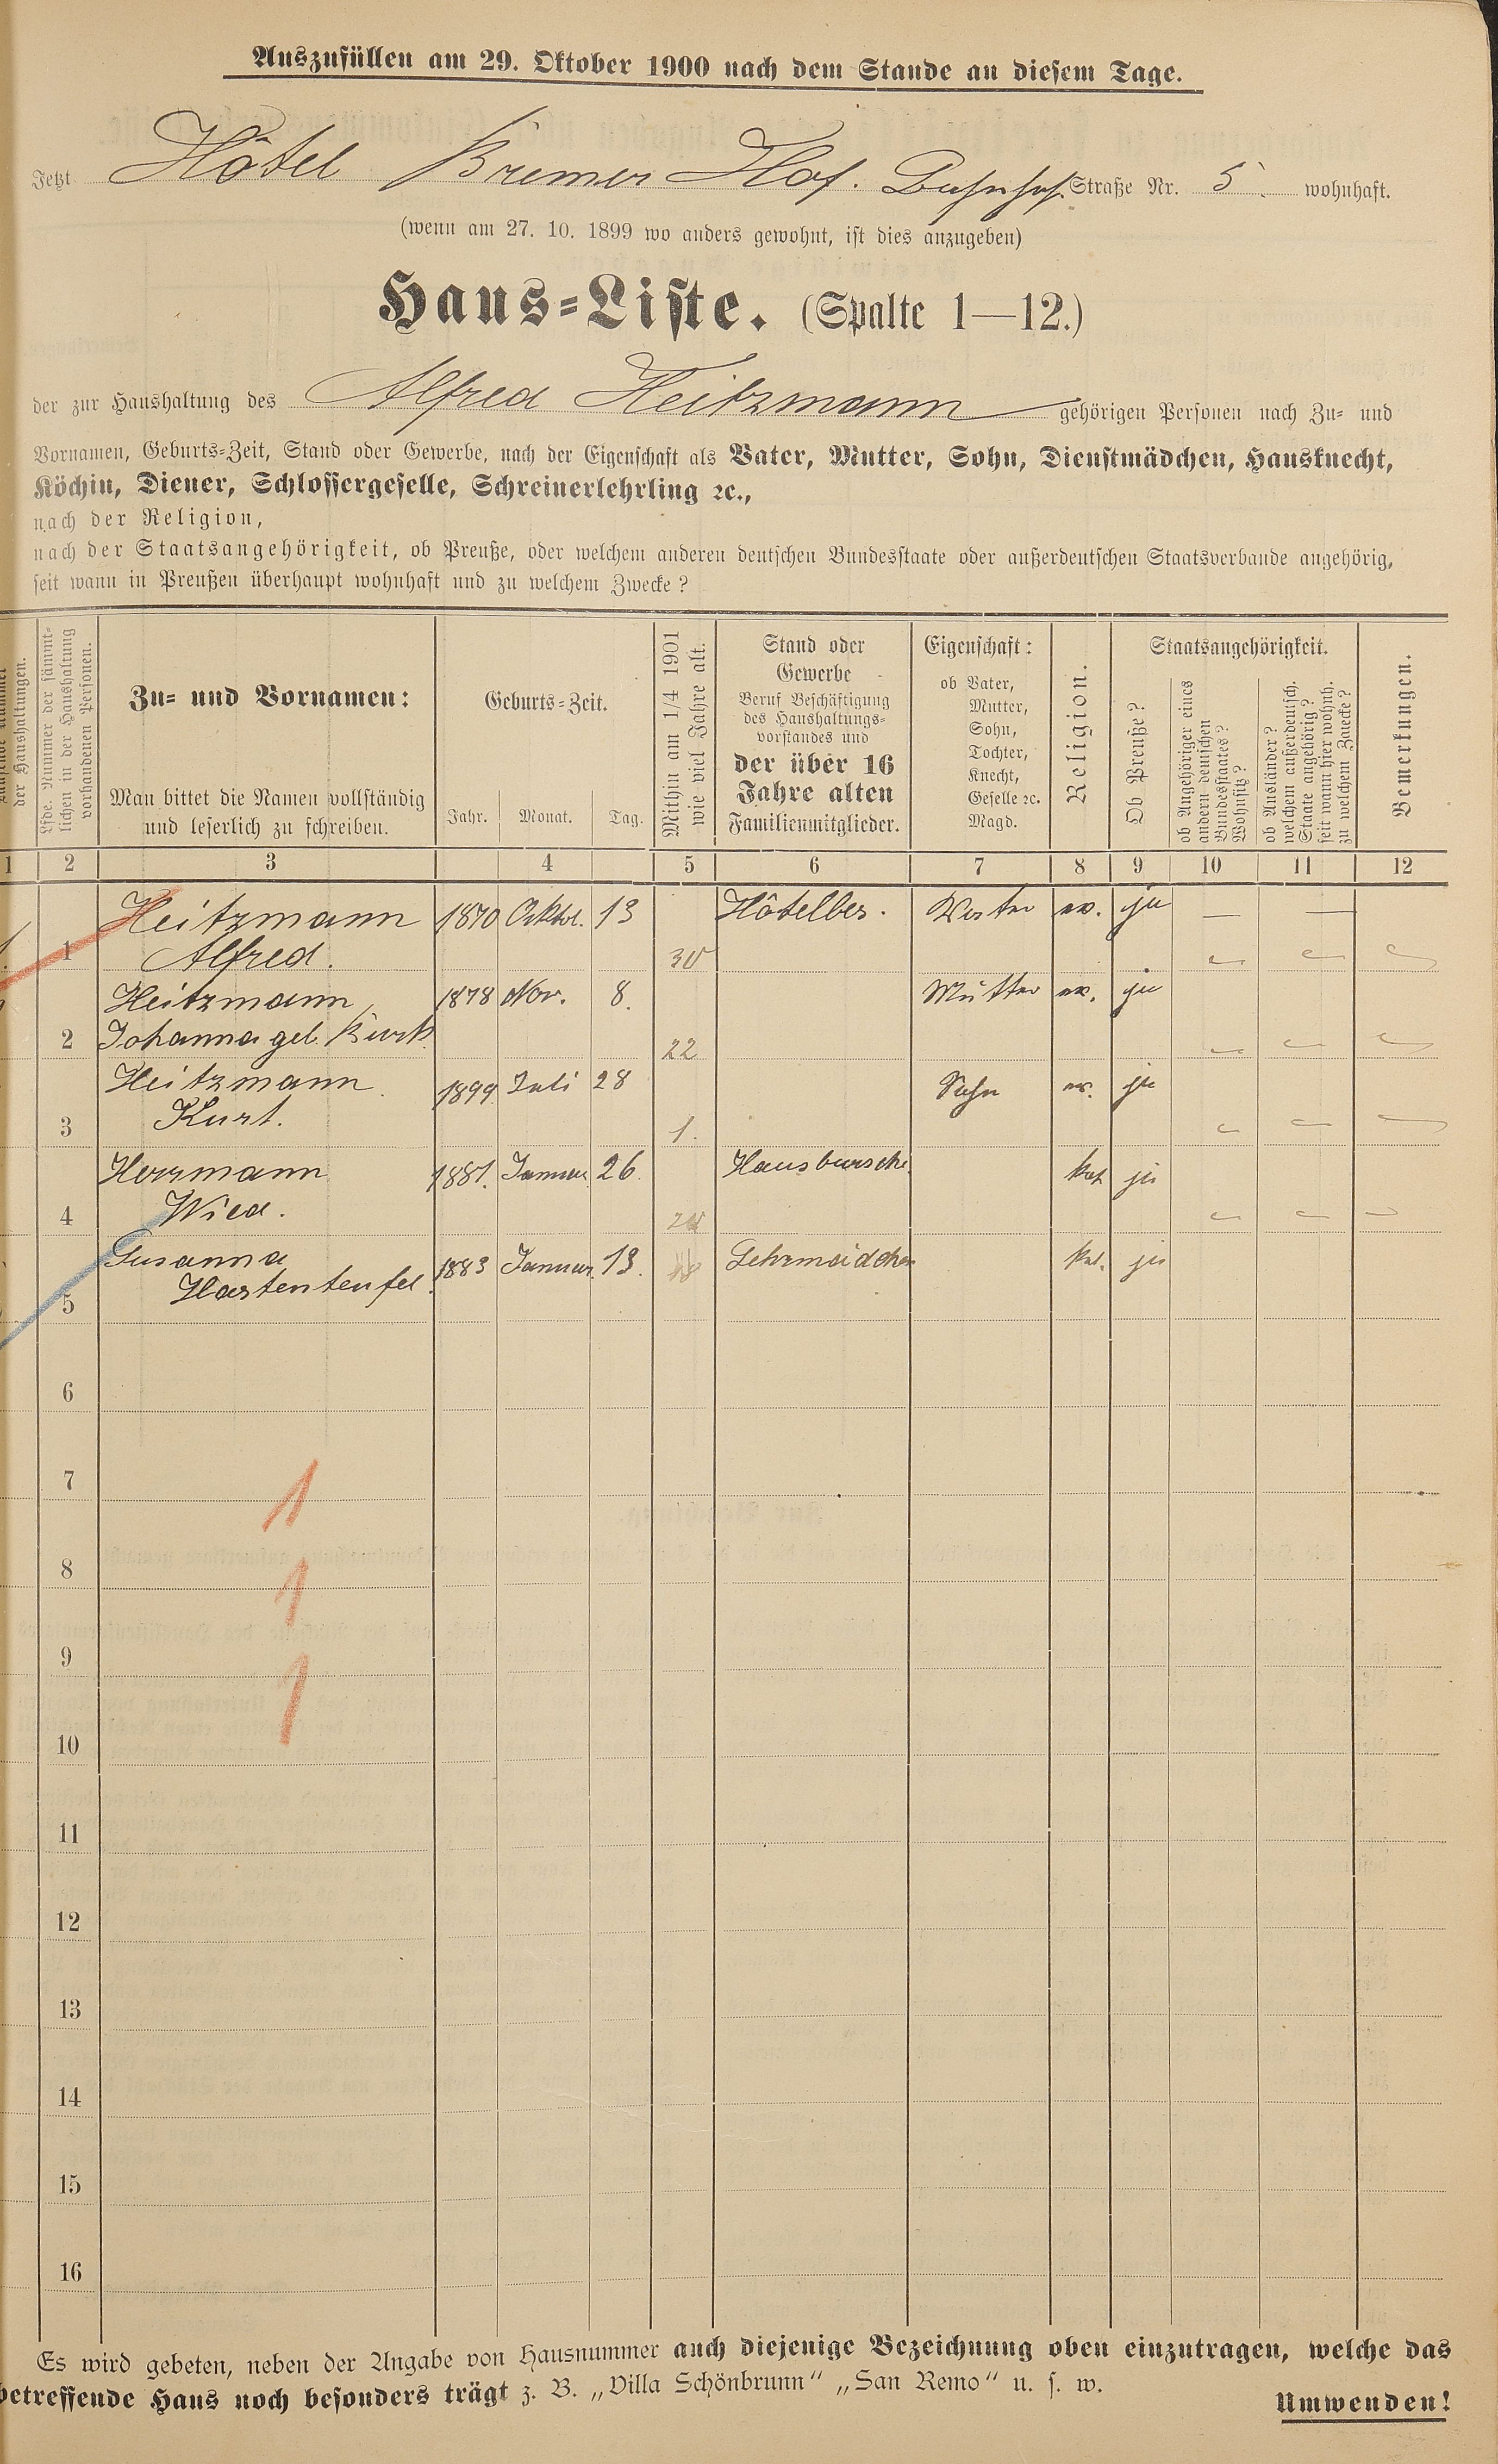 Auszufüllen am 29. Oktober 1900 nach dem Stande an diesem Tage.
Jetzt Hôtel Bremer Hof. Bahnhof Straße Nr. 5. wohnhaft.
(wenn am 27. 10. 1899 wo anders gewohnt, ist dies anzugeben)
Haus-Liste. (Spalte 1—12.)
der zur Haushaltung des Alfred Heitzmann gehörigen Personen nach Zu- und
Vornamen, Geburts-Zeit, Stand oder Gewerbe, nach der Eigenschaft als Vater, Mutter, Sohn, Dienstmädchen, Hausknecht,
Köchin, Diener, Schlossergeselle, Schreinerlehrling ꝛc.,
nach der Religion,
nach der Staatsangehörigkeit, ob Preuße, oder welchem anderen deutschen Bundesstaate oder außerdeutschen Staatsverbande angehörig,
seit wann in Preußen überhaupt wohnhaft und zu welchem Zwecke?
der Haushaltungen.
Lfde. Nummer der sämmt-
lichen in der Haushaltung
vorhandenen Personen.
Zu- und Vornamen:
Man bittet die Namen vollständig
und leserlich zu schreiben.
Geburts-Zeit.
Jahr. Monat. Tag.
Mithin am 1/4 1901
wie viel Jahre alt.
Stand oder
Gewerbe
Beruf Beschäftigung
des Haushaltungs-
vorstandes und
der über 16
Jahre alten
Familienmitglieder.
Eigenschaft:
ob Vater,
Mutter,
Sohn,
Tochter,
Knecht,
Geselle ꝛc.
Magd.
Religion.
Staatsangehörigkeit.
Ob Preuße?
ob Angehöriger eines
andern deutschen
Bundesstaates?
Wohnsitz?
ob Ausländer?
welchem außerdeutsch.
Staate angehörig?
seit wann hier wohnh.
zu welchem Zwecke?
Bemerkungen.
1 2 3 4 5 6 7 8 9 10 11 12
Heitzmann 1870 Oktbr. 13 Hôtelbes. Vater ev. ja — —
1 Alfred. 30
Heitzmann, 1878 Nov. 8. Mutter ev. ja
2 Johanna geb. 22
Heitzmann 1899 Juli 28 Sohn ev. ja
3 Kurt. 1.
Herrmann 1881. Januar 26. Hausbursche kat ja
4 Wied. 20
Susanna 1883 Januar. 13. 18 Lehrmädchen kat. ja
5 Hartenteufel.
6
7
1
8
1
9
1
10
11
12
13
14
15
16
Es wird gebeten, neben der Angabe von Hausnummer auch diejenige Bezeichnung oben einzutragen, welche das
betreffende Haus noch besonders trägt z. B. „Villa Schönbrunn“ „San Remo“ u. s. w.
Umwenden!